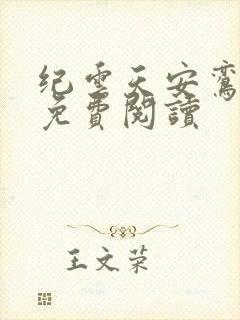 纪云天安鸾
免費閱讀
王文荣